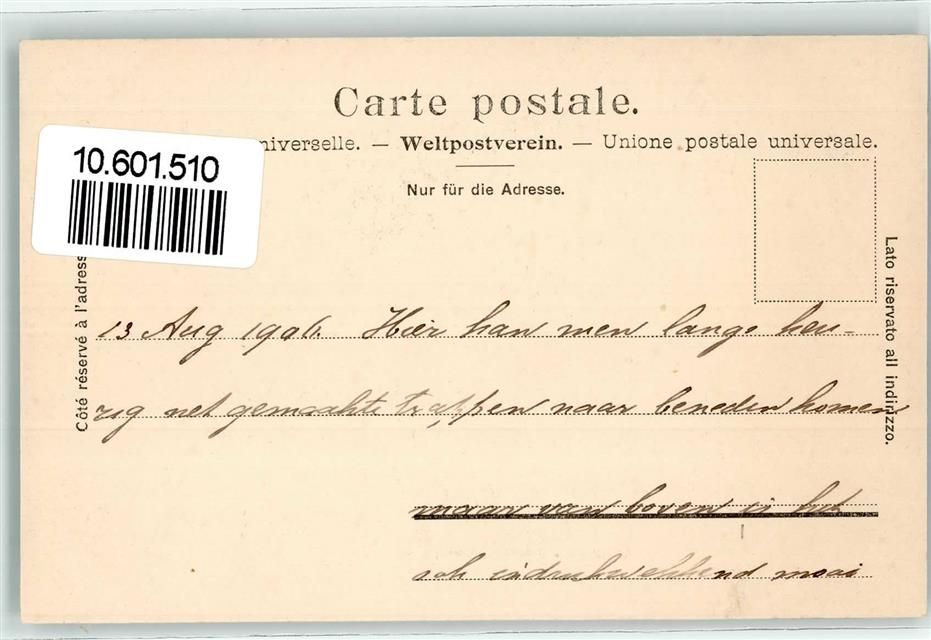 Carte postale.
niverselle. — Weltpostverein. — Unione postale universale.
10.601.510
Nur für die Adresse.
Côté réservé à l'adresse
Lato riservato all indirizzo.
13 Aug 1906. Hier kan men langs keu-
rig net gemaakte trappen naar beneden komen
maar van boven is het
ook indrukwekkend mooi